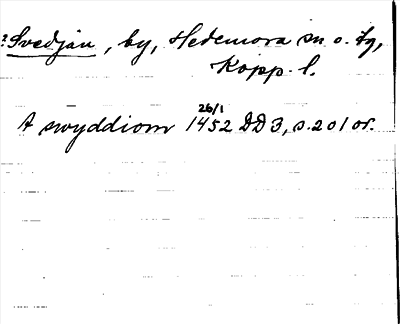 ? Svedjan, by, Hedemora sn o. tg,
Kopp. l.
26/1
A swyddiom 1452 DD 3, s. 201 or.